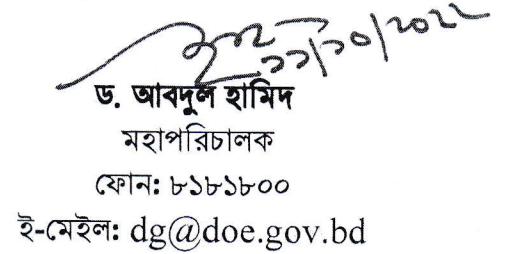 ১১/১০/২০২২
ড. আবদুল হামিদ
মহাপরিচালক
ফোন: ৮১৮১৮০০
ই-মেইল: dg@doe.gov.bd